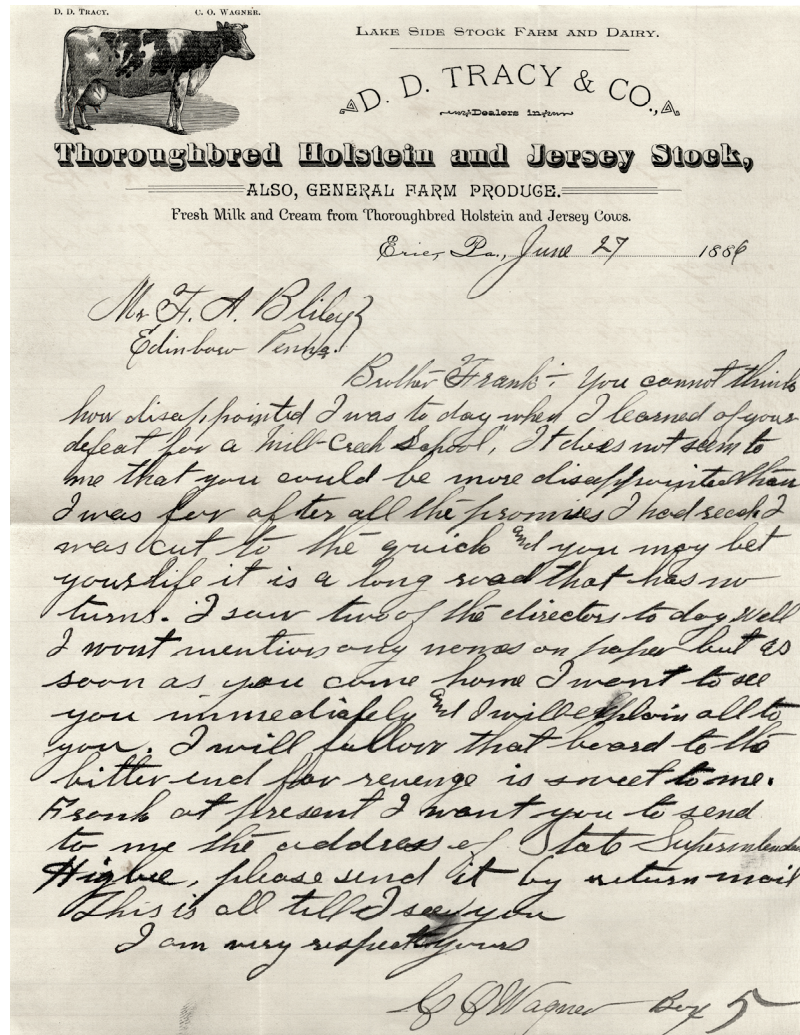 D. D. TRACY. C. O. WAGNER.
LAKE SIDE STOCK FARM AND DAIRY.
D. D. TRACY & CO.,
Dealers in
Thoroughbred Holstein and Jersey Stock,
ALSO, GENERAL FARM PRODUCE.
Fresh Milk and Cream from Thoroughbred Holstein and Jersey Cows.
Erie, Pa., June 27 1886
Mr F. A. Bliley
Edinboro Penna.
Brother Frank:- You cannot think
how disappointed I was to day when I learned of your
defeat for a "Mill-Creek School", It does not seem to
me that you could be more disappointed than
I was for after all the promises I had recd I
was cut to the quick and you may bet
your life it is a long road that has no
turns. I saw two of the directors to day well
I wont mention any names on paper but as
soon as you come home I want to see
you immediately and I will explain all to
you. I will follow that board to the
bitter end for revenge is sweet to me.
Frank at present I want you to send
to me the address of State Superintendent
Higbee, please send it by return mail
This is all till I see you
I am very respect yours
C O Wagner Box 5